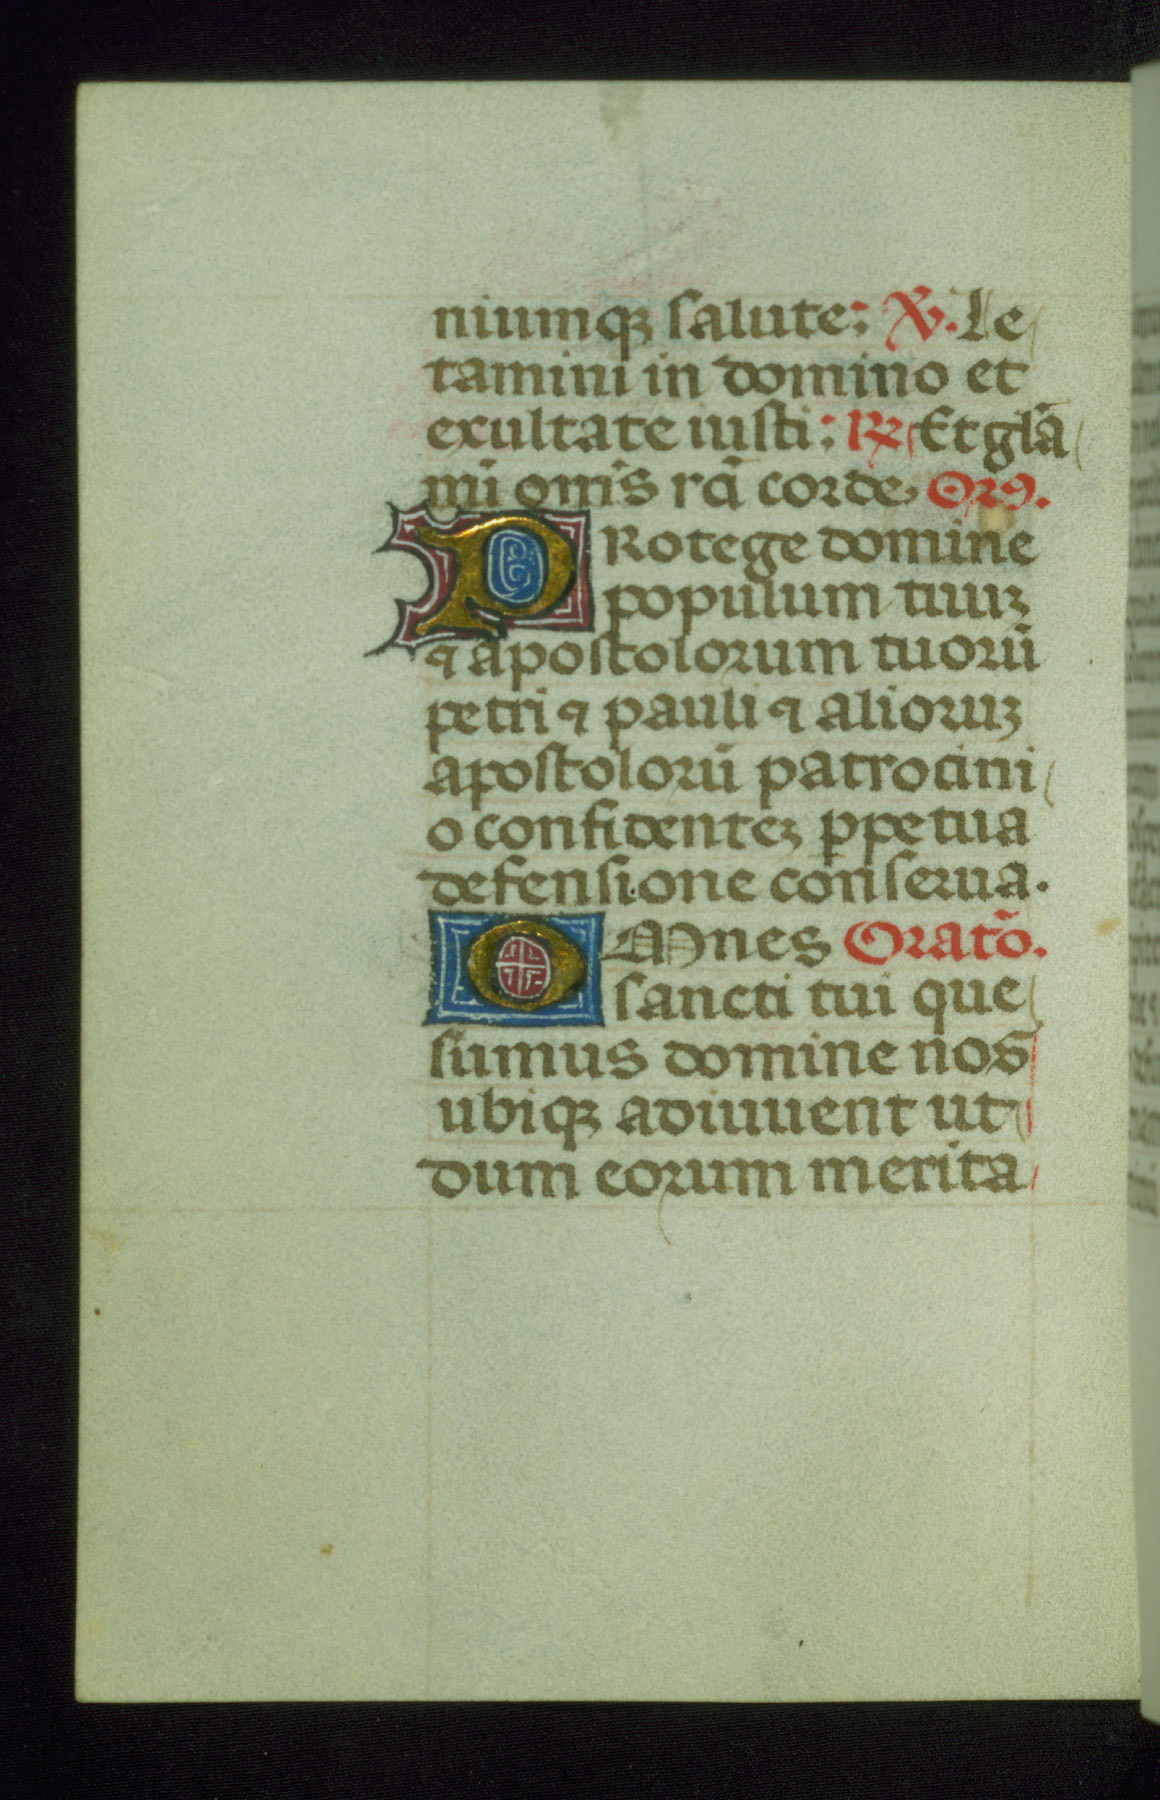 niumqꝫ salute: ℣. Le
tamini in domino et
exultate iusti: ℟ Et glā
mī om̄s rc̄ti corde. Orꝰ.
PRotege domine
populum tuuꝫ
⁊ apostolorum tuorū
petri ⁊ pauli ⁊ alioruꝫ
apostolorū patrocini
o confidenteꝫ ꝑpetua
defensione conserua.
OMnes Oratō.
sancti tui que
sumus domine nos
ubiqꝫ adiuuent ut
dum eorum merita